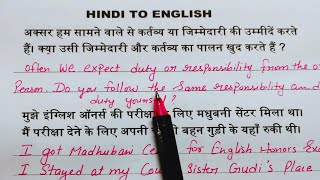 HINDI TO ENGLISH
अक्सर हम सामने वाले से कर्तव्य या जिम्मेदारी की उम्मीदें करते
हैं। क्या उसी जिम्मेदारी और कर्तव्य का पालन खुद करते हैं ?
often We expect duty or responsibility from the
Person. Do you follow the Same responsibility
duty yourself?
मुझे इंग्लिश ऑनर्स की परीक्षा के लिए मधुबनी सेंटर मिला था।
मैं परीक्षा देने के लिए अपनी बहन गुड़ी के यहाँ रुकी थी।
I got Madhubani for English Honors
I Stayed at my Sister Gudi's Place